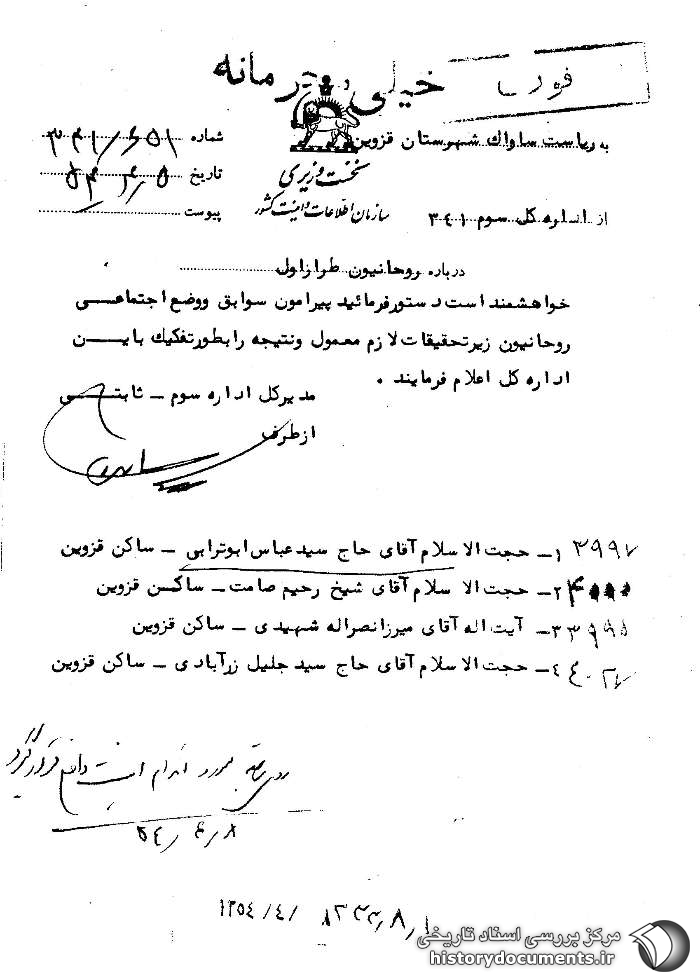 خیلی محرمانه
فوری
به ریاست ساواك شهرستان قزوین
شماره ۳۴۱/۶۵۱
از اداره کل سوم ۳۴۱
نخست وزیری
تاریخ
سازمان اطلاعات و امنیت کشور
پیوست
درباره روحانیون طرازاول
خواهشمند است دستورفرمائید پیرامون سوابق ووضع اجتماعی
روحانیون زیرتحقیقات لازم معمول ونتیجه رابطورتفکیك باین
اداره کل اعلام فرمایند .
مدیرکل اداره سوم ـ ثابتی
ازطرف
۱ـ حجت الاسلام آقای حاج سیدعباس ابوترابی ـ ساکن قزوین ۳۹۹۷
۲ـ حجت الاسلام آقای شیخ رحیم صامت ـ ساکن قزوین
۳ـ آیت اله آقای میرزانصراله شهیدی ـ ساکن قزوین ۳۹۹۵
۴ـ حجت الاسلام آقای حاج سید جلیل زرآبادی ـ ساکن قزوین ۴۰۲۷
مورد اقدام قرار گیرد
۵۴/۴/۸
۱۳۵۴/۴/
مرکز بررسی اسناد تاریخی
historydocuments.ir